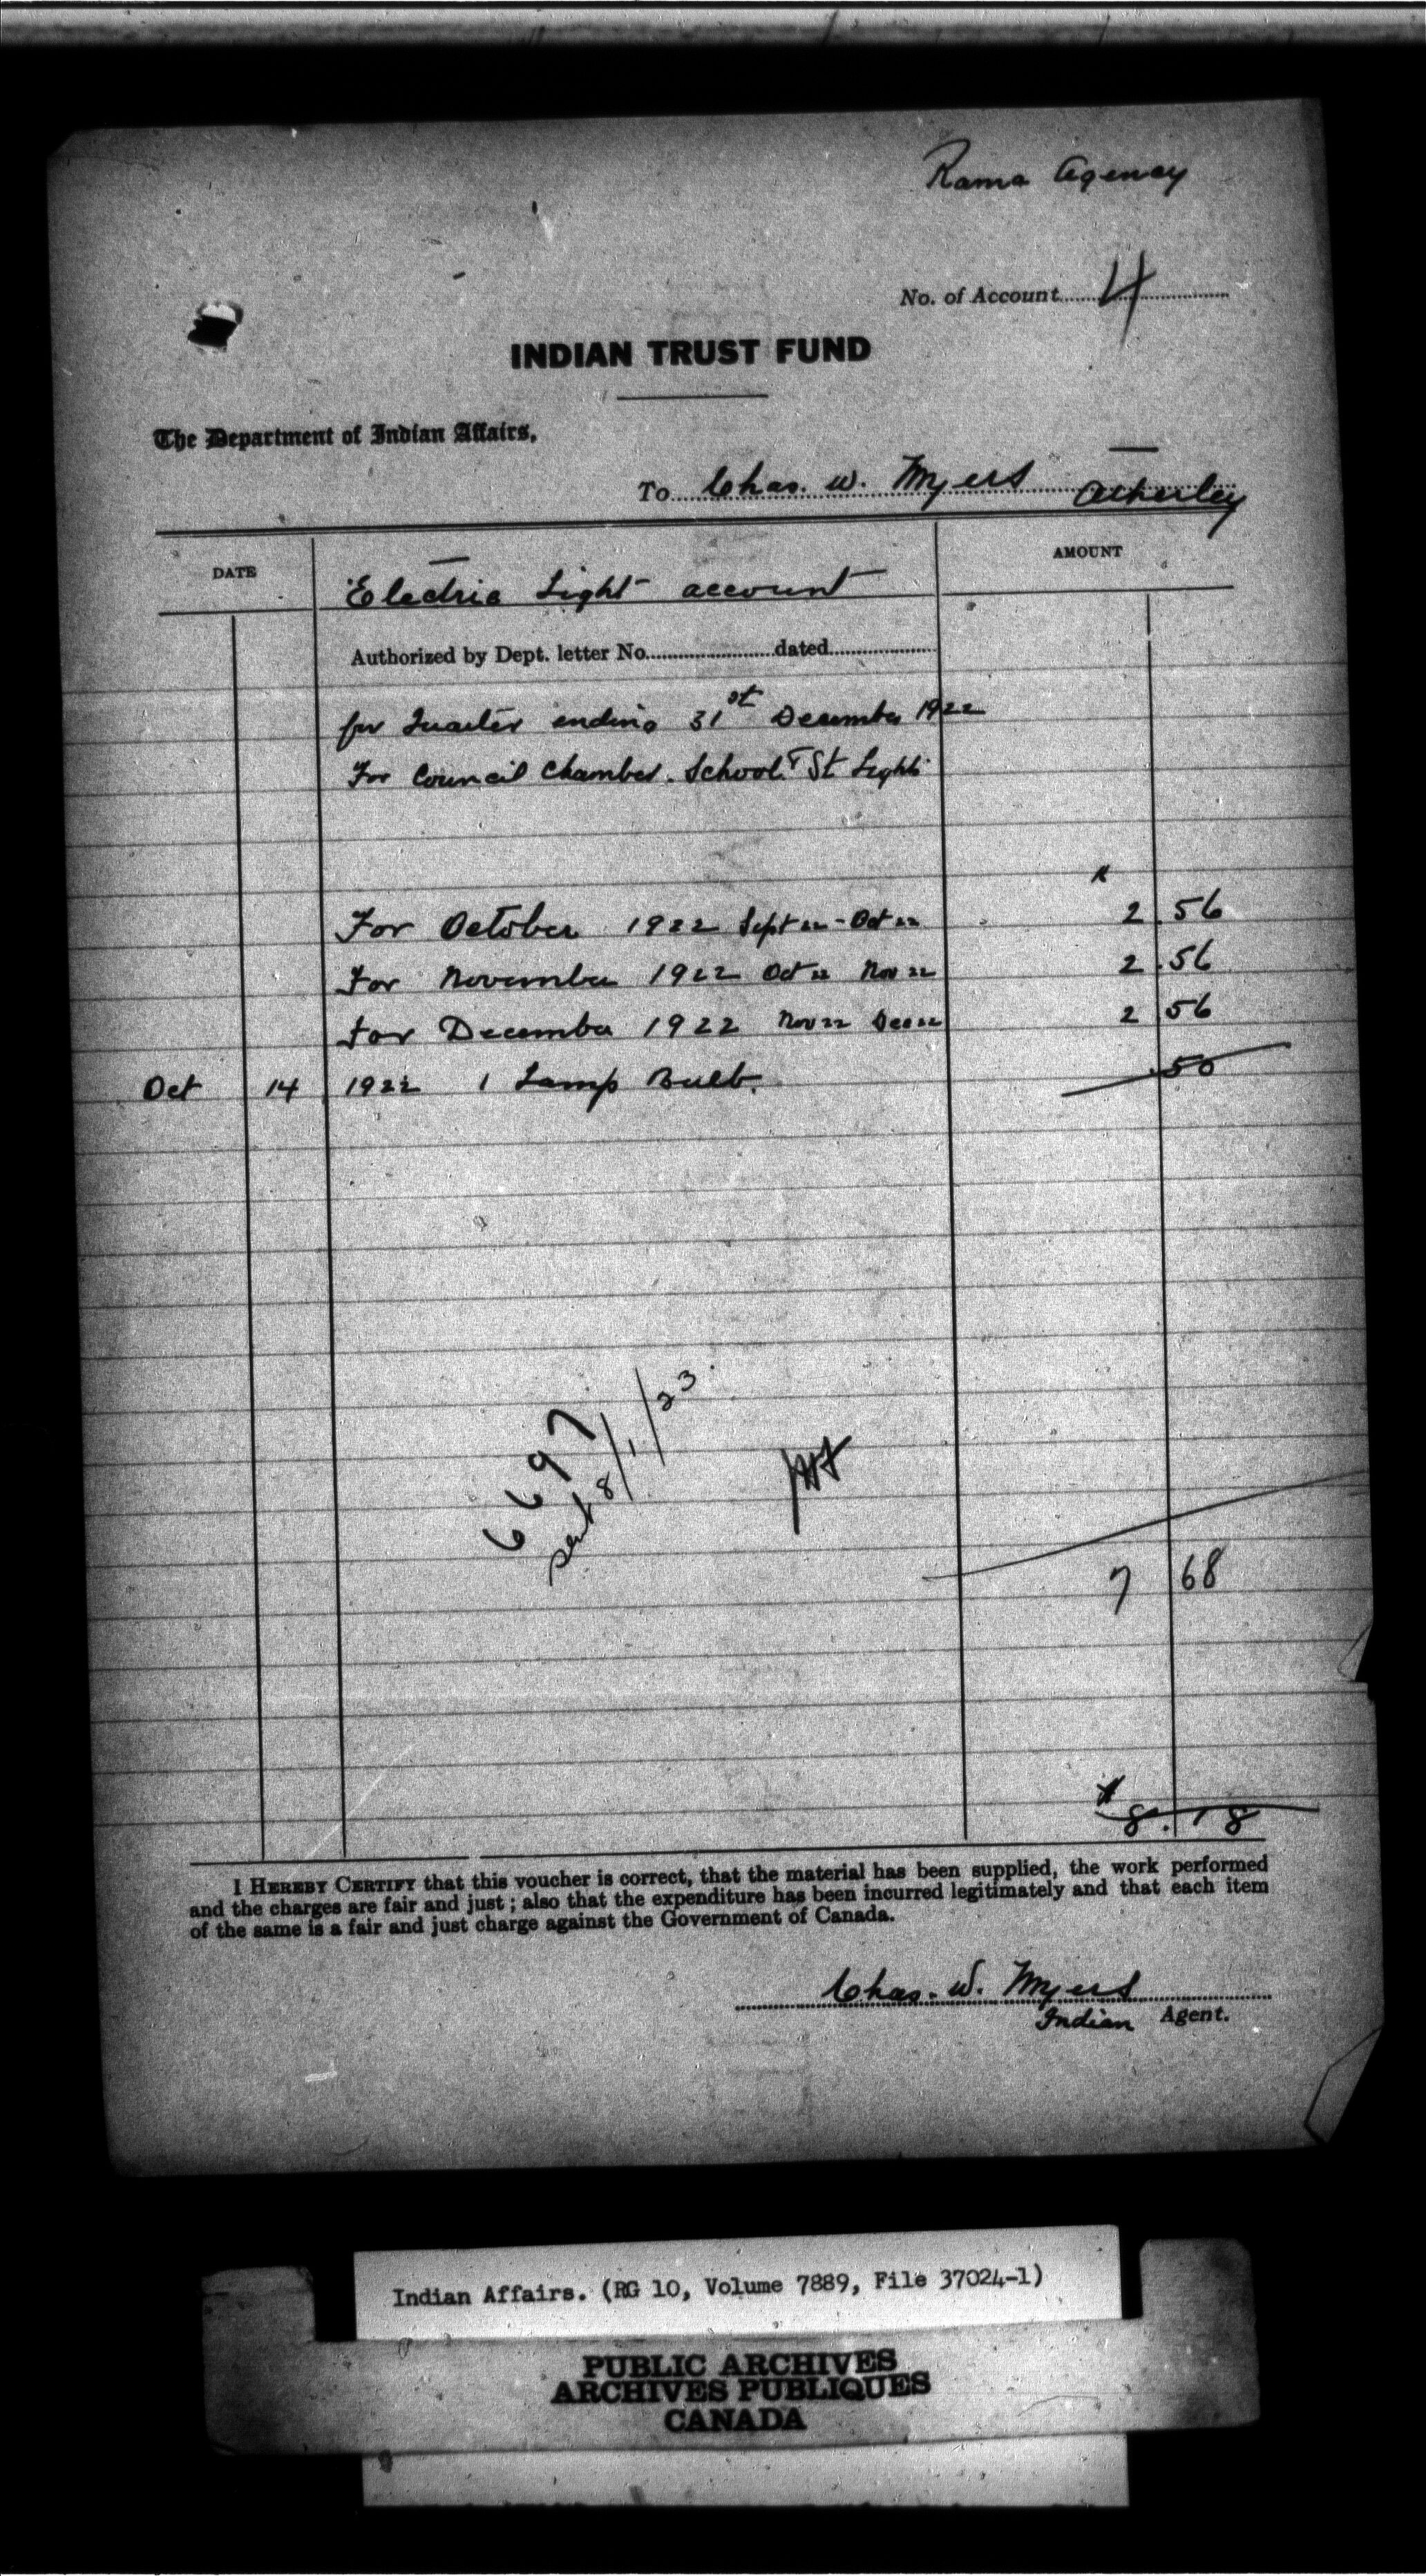 Rama Agency
No. of Account 4
INDIAN TRUST FUND
The Department of Indian Affairs,
To Chas. W. Myers Atherley
DATE
AMOUNT
Electric Light account
Authorized by Dept. letter No. dated
for Quarter ending 31st December 1922
For Council Chamber. School & St Lights
For October 1922 Sept 22 - Oct 22 2.56
For November 1922 Oct 22 Nov 22 2.56
For December 1922 Nov 22 Dec 22 2 56
Oct 14 1922 1 Lamp Bulb. .50
6697
sent 8/1/23
7 68
8.18
I HEREBY CERTIFY that this voucher is correct, that the material has been supplied, the work performed
and the charges are fair and just ; also that the expenditure has been incurred legitimately and that each item
of the same is a fair and just charge against the Government of Canada.
Chas. W. Myers
Indian Agent.
Indian Affairs. (RG 10, Volume 7889, File 37024-1)
PUBLIC ARCHIVES
ARCHIVES PUBLIQUES
CANADA